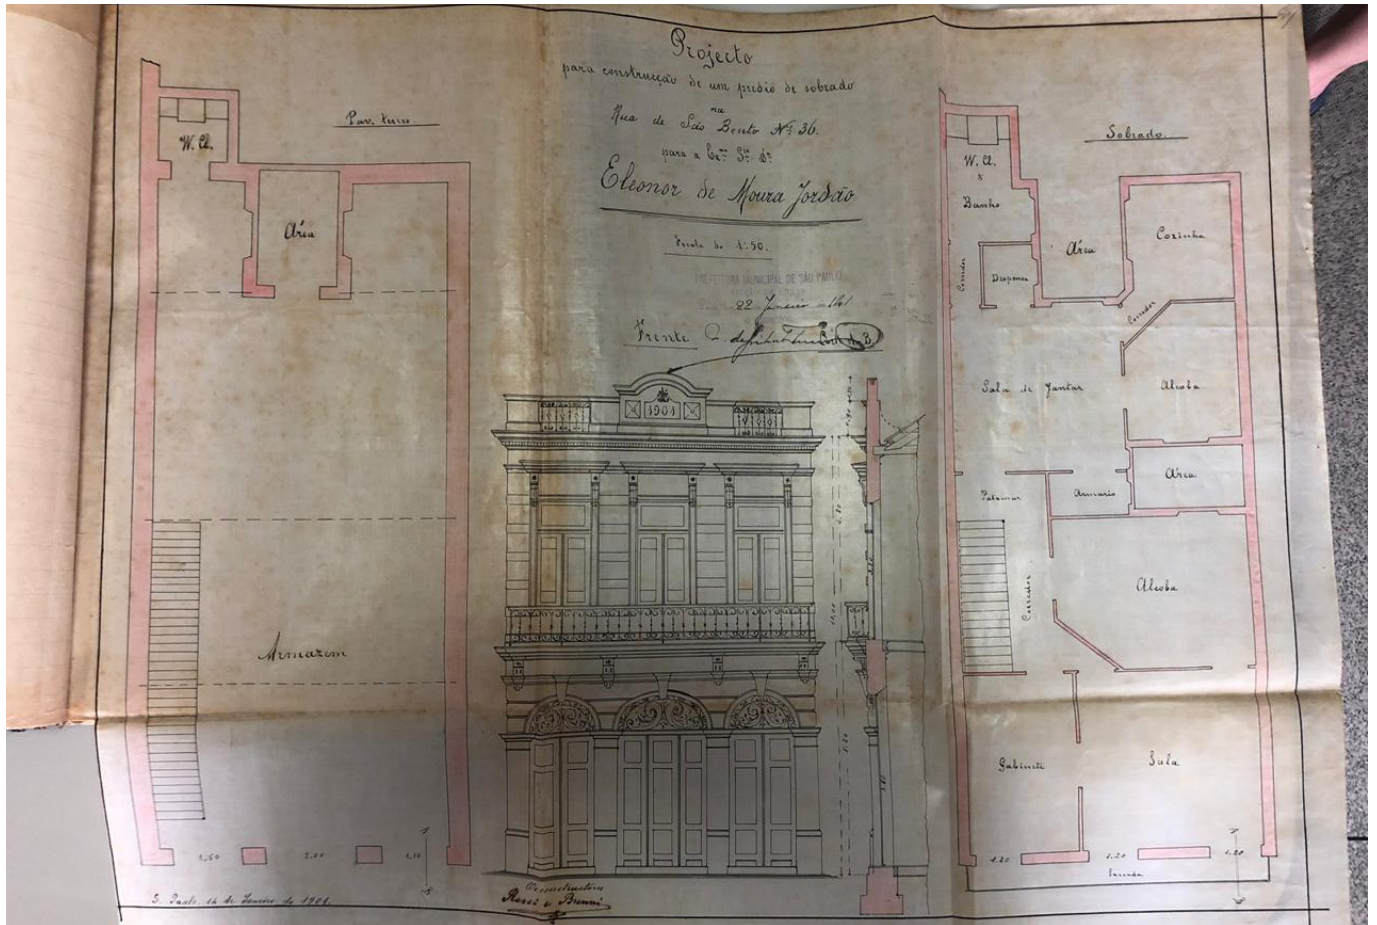 Projecto
para construcção de um predio de sobrado
Rua de São Bento Nº 36.
para a Exma Sra Da
Eleonor de Moura Jordão
Escala de 1:50.
PREFEITURA MUNICIPAL DE SÃO PAULO
22 Janeiro
Frente
1901
Pav. terreo
W. Cl.
Área
Armazem
1,50
2,00
S. Paulo, 14 de Janeiro de 1901.
Constructores
Rossi e Brenni
Sobrado.
W. Cl.
Banho
Área
Cozinha
Corredor
Despensa
Corredor
Sala de Jantar
Alcoba
Patamar
Armario
Área
Corredor
Alcoba
Gabinete
Sala
1.20
1.20
1.20
Sacada
5.20